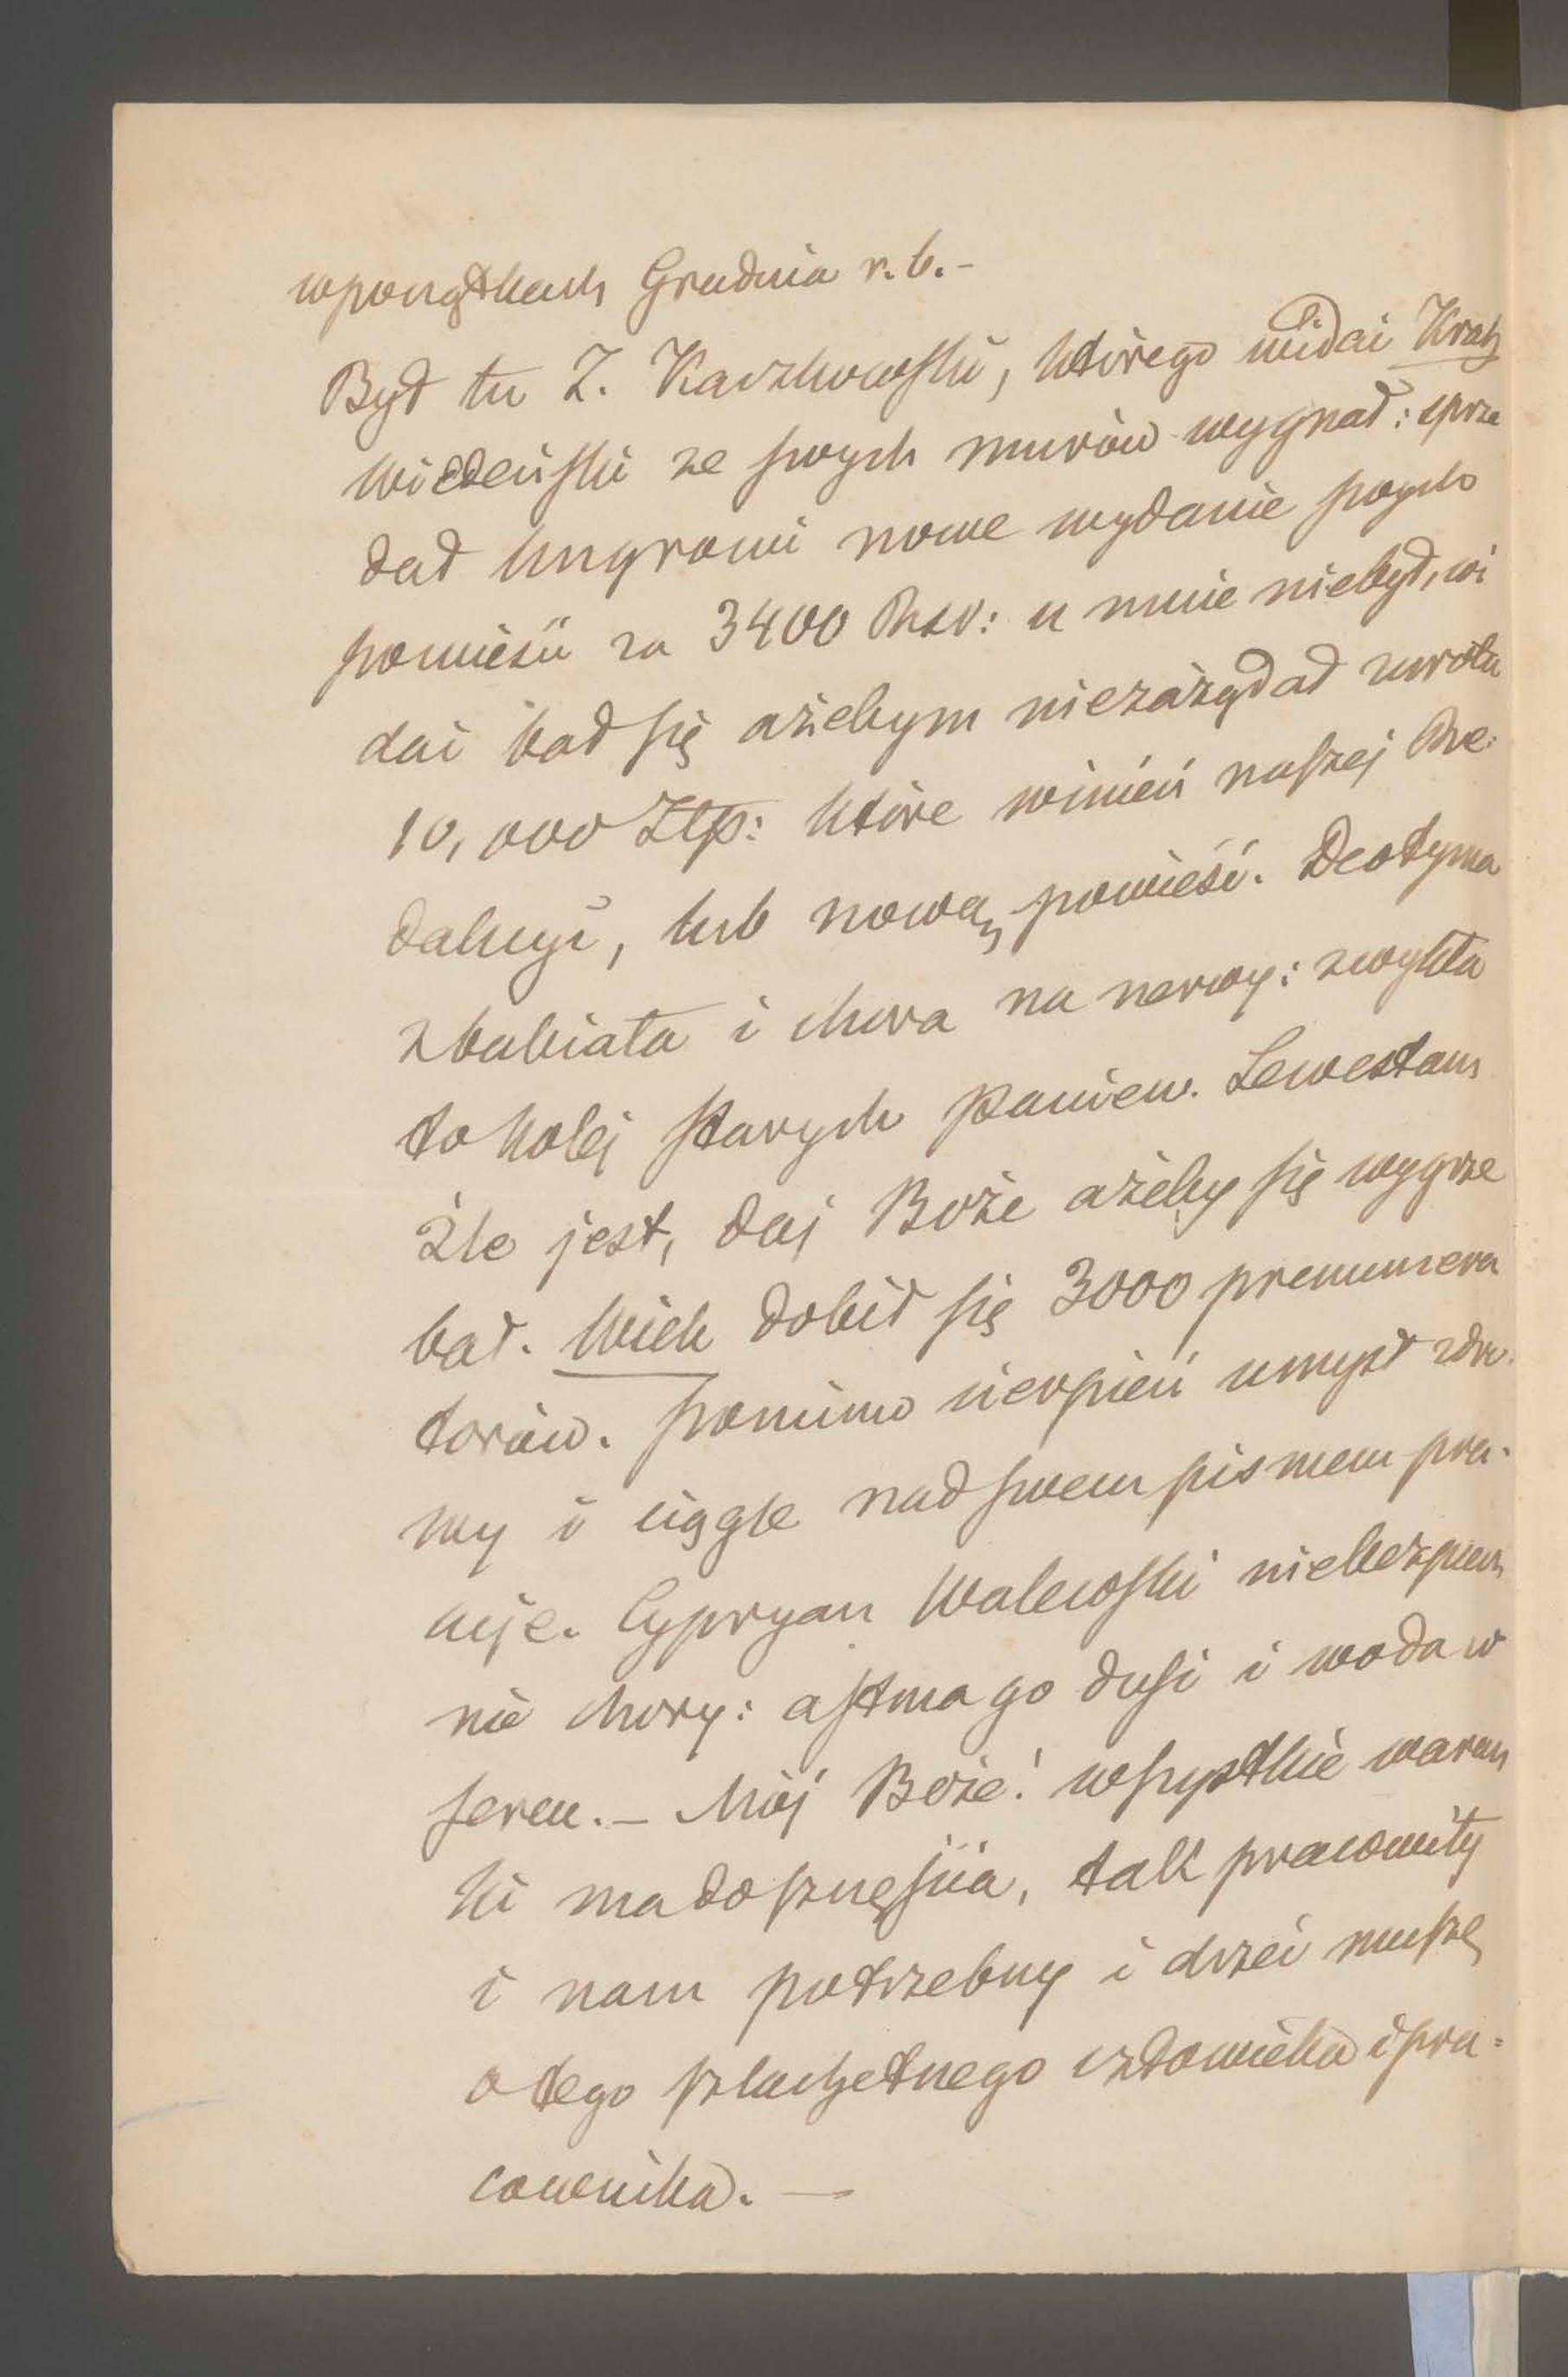 w początkach Grudnia r. b. –
Był tu Z. Kaczkowski, którego widać Krach
wiedeński ze swych murów wygnał: sprze
dał Ungrowi nowe wydanie swych
powieści za 3400 Rsr: u mnie niebył, wi
dać bał się ażebym niezażądał zwrotu
10,000 Złp: które winień naszej Re:
dakcyi, lub nową powieść. Deotyma
zbabiała i chora na nerwy: zwykła
to kolej starych panien. Lewestam
źle jest, daj Boże ażeby się wygrze
bał. Wiek dobił się 3000 prenumera
torów. Pomimo cierpień umysł zdro-
wy i ciągle nad swem pismem pra-
cuje. Cypryan Walewski niebezpiecz
nie chory: astma go dusi i woda w
sercu. – Mój Boże! wszystkie warun
ki ma do szczęścia, tak pracowity
i nam potrzebny i drżeć muszę
o tego szlachetnego człowieka i pra-
cownika. —